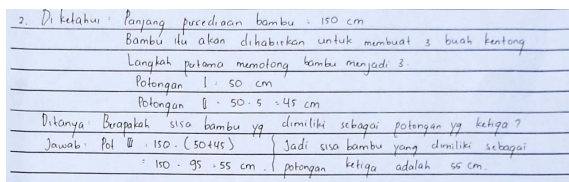 2. Diketahui : Panjang persediaan bambu = 150 cm
Bambu itu akan dihabiskan untuk membuat 3 buah kentong
Langkah pertama memotong bambu menjadi 3.
Potongan I = 50 cm
Potongan II = 50 - 5 = 45 cm
Ditanya : Berapakah sisa bambu yg dimiliki sebagai potongan yg ketiga ?
Jawab : Pot III = 150 - (50+45) Jadi sisa bambu yang dimiliki sebagai
= 150 - 95 = 55 cm. potongan ketiga adalah 55 cm.